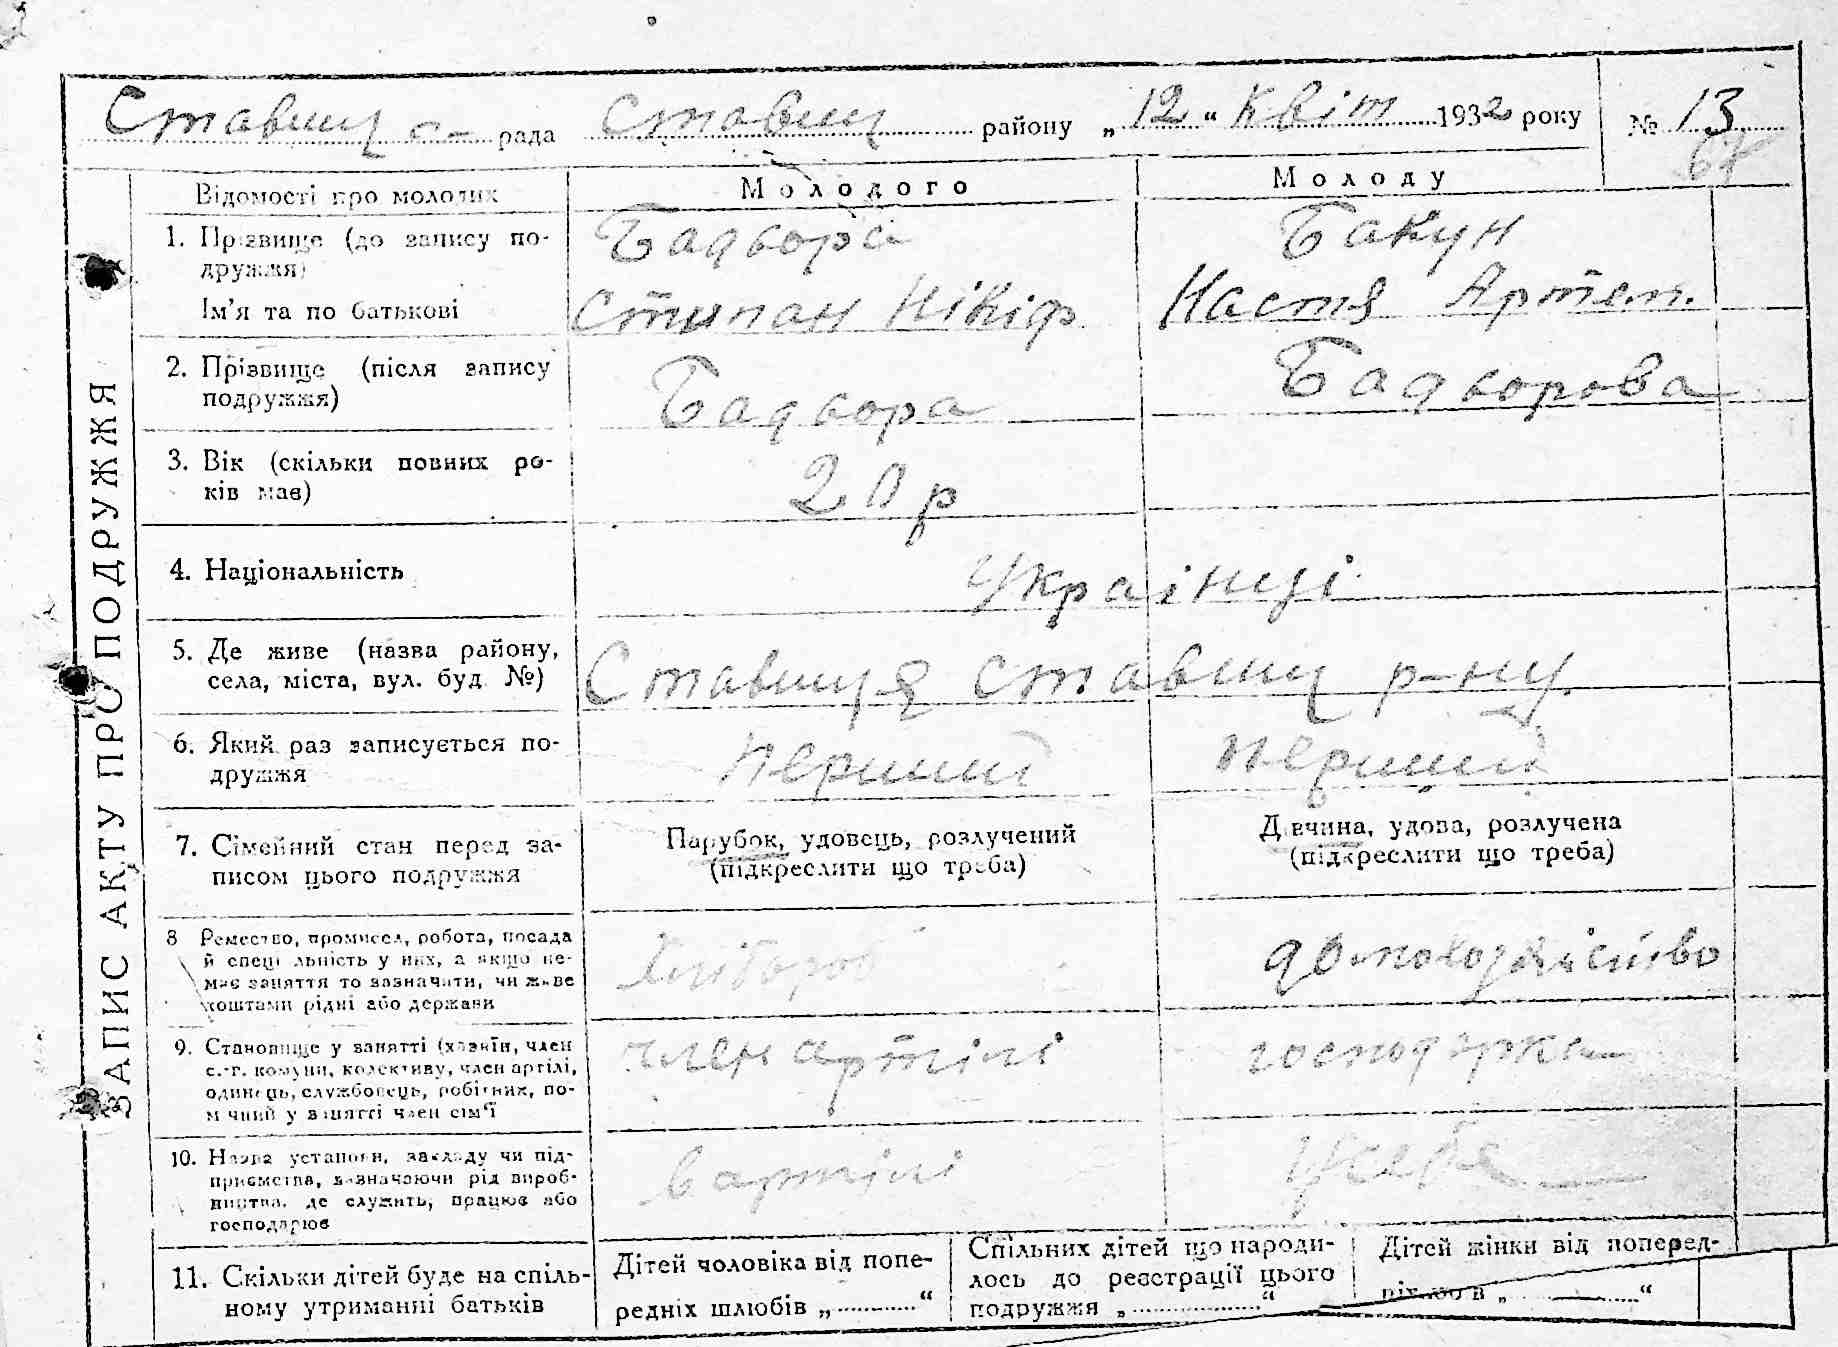 Ставищ с- рада Ставищ району „12“ Квіт 1932 року № 13
67
ЗАПИС АКТУ ПРО ПОДРУЖЖЯ
Відомості про молодих
Молодого
Молоду
1. Прізвище (до запису по-
дружжя)
Бадьора
Бакун
Ім’я та по батькові
Стипан Нікіф
Настя Артем.
2. Прізвище (після запису
подружжя)
Бадьора
Бадьорова
3. Вік (скільки повних ро-
ків має)
20 р
4. Національність
Українці
5. Де живе (назва району,
села, міста, вул. буд. №)
Ставищя Ставищ р-ну
6. Який раз записується по-
дружжя
перший
перший
7. Сімейний стан перед за-
писом цього подружжя
Парубок, удовець, розлучений
(підкреслити що треба)
Дівчина, удова, розлучена
(підкреслити що треба)
8 Ремество, промисел, робота, посада
й спеціяльність у них, а якщо не-
має заняття то зазначити, чи живе
коштами рідні або держави
Хлібороб
9. Становище у занятті (хазяїн, член
с.-г. комуни, колективу, член артілі,
одинець, службовець, робітник, по-
мічний у занятті член сім’ї
член артілі
господарка
10. Назва установи, закладу чи під-
приємства, зазначаючи рід вироб-
ництва, де служить, працює або
господарює
в артілі
У себе
11. Скільки дітей буде на спіль-
ному утриманні батьків
Дітей чоловіка від попе-
редніх шлюбів „ “
Спільних дітей що народи-
лось до реєстрації цього
подружжя „ “
Дітей жінки від поперед-